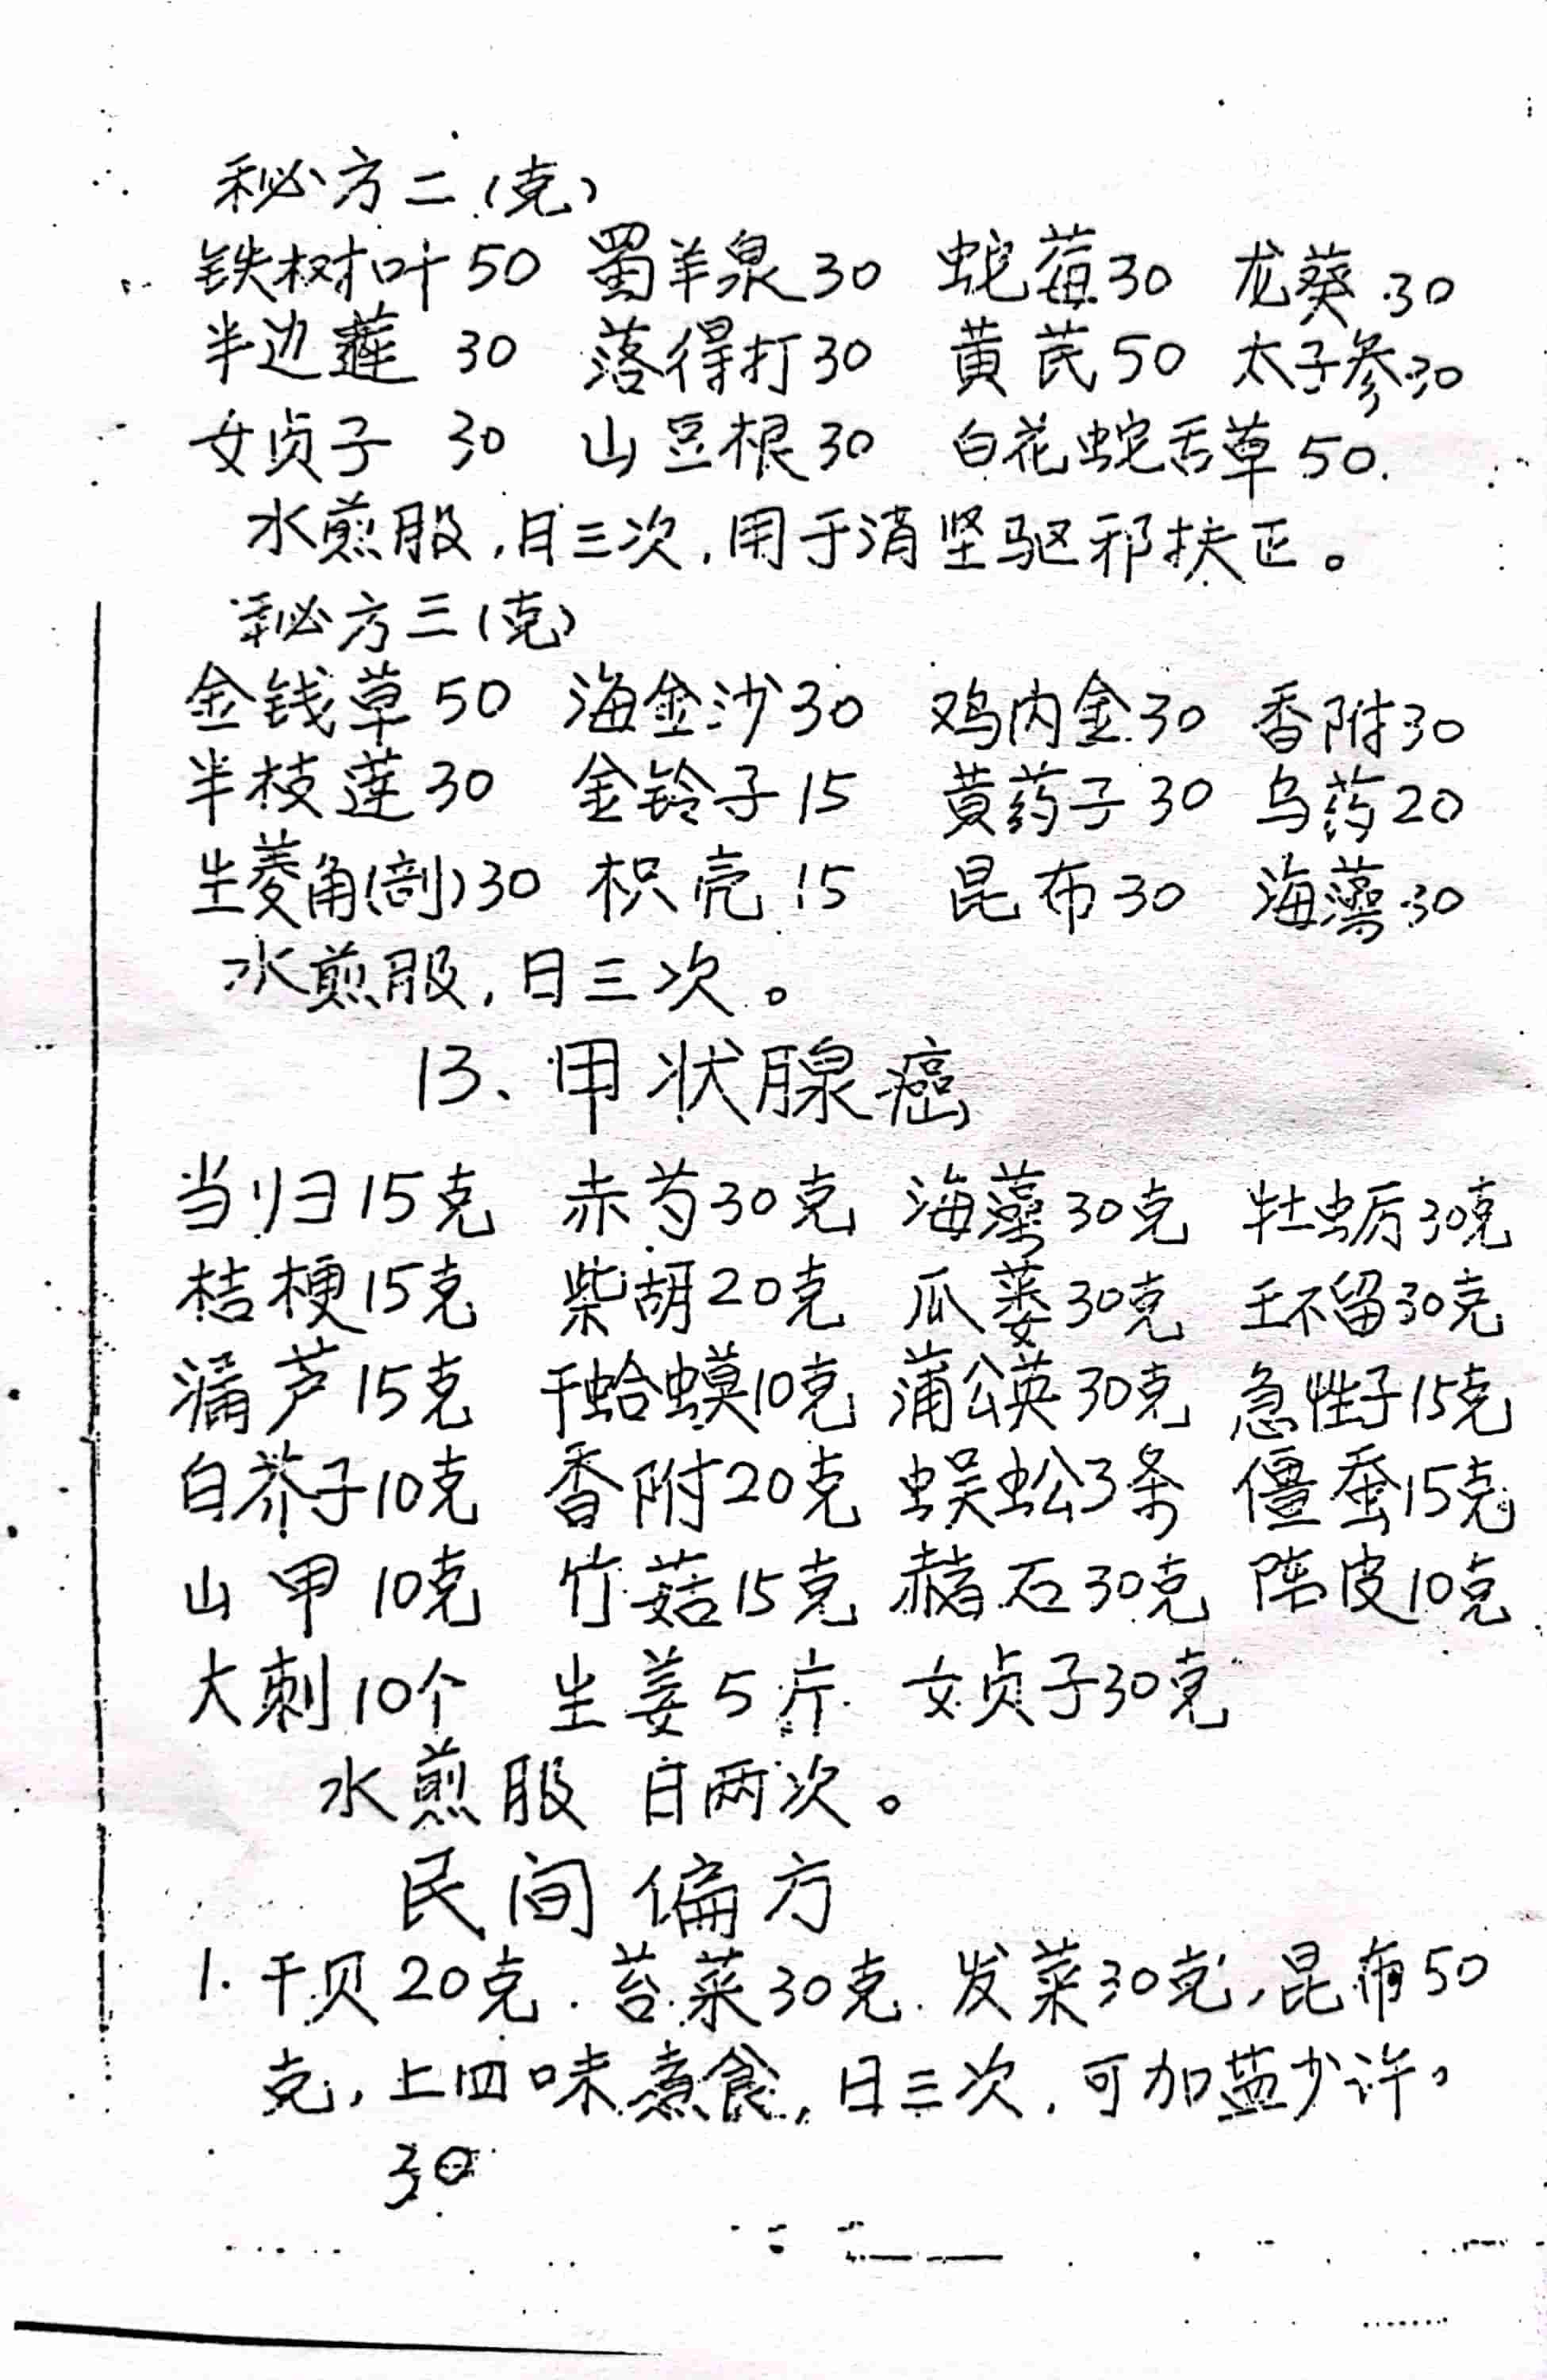 秘方二(克)
铁树叶50 蜀羊泉30 蛇莓30 龙葵30
半边莲 30 落得打30 黄芪50 太子参30
女贞子 30 山豆根30 白花蛇舌草50.
水煎服,日三次,用于消坚驱邪扶正。
秘方三(克)
金钱草50 海金沙30 鸡内金30 香附30
半枝莲30 金铃子15 黄药子30 乌药20
生菱角(剖)30 枳壳15 昆布30 海藻30
水煎服,日三次。
13、甲状腺癌
当归15克 赤芍30克 海藻30克 牡蛎30克
桔梗15克 柴胡20克 瓜蒌30克 王不留30克
漏芦15克 干蛤蟆10克 蒲公英30克 急性子15克
白芥子10克 香附20克 蜈蚣3条 僵蚕15克
山甲10克 竹菇15克 赭石30克 陈皮10克
大刺10个 生姜5片 女贞子30克
水煎服 日两次。
民间偏方
1.干贝20克.苔菜30克.发菜30克,昆布50
克,上四味煮食,日三次,可加盐少许。
30